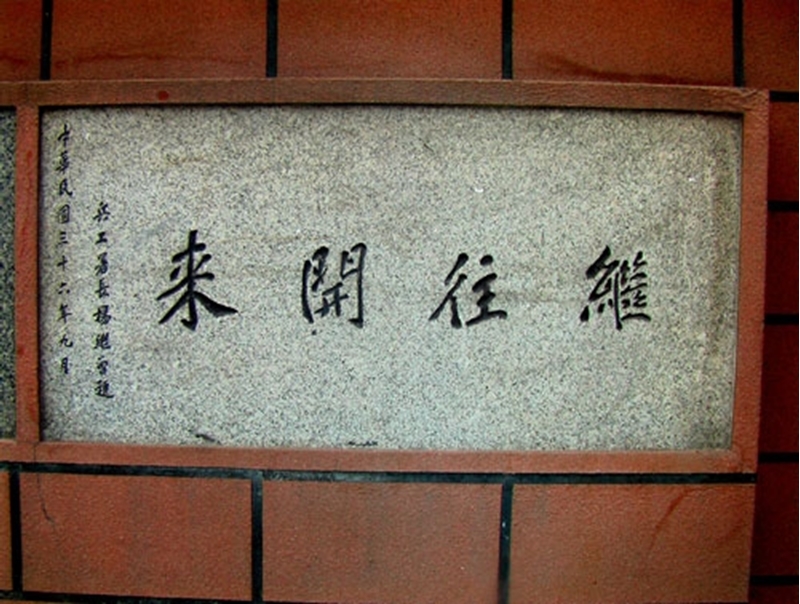 繼往開来
兵工署長楊繼曾題
中華民國三十六年九月